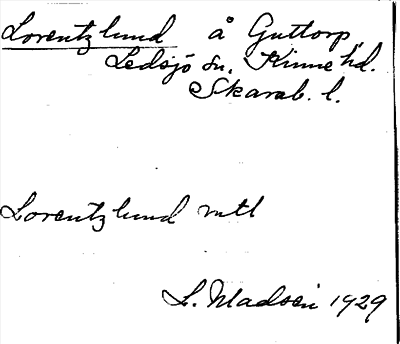 Lorentzlund å Guttorp
Ledsjö sn. Kinne hd.
Skarab. l.
Lorentzlund mtl
L. Madsen 1929